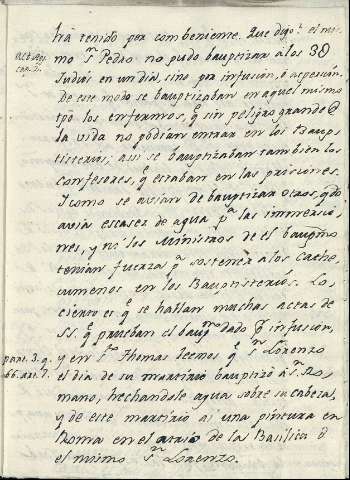 ha tenido por combeniente. Que dijo el mis-
mo Sn Pedro no pudo bauptizar à los 3
Act. Ap.
cap. 2.
Judios en un dia, sino por infusion, ò aspersion.
De este modo se bauptizaban en aquel mismo
tpõ los enfermos, q̃ sin peligro grande
la vida no podian entrar en los Baup-
tisterios; assi se bauptizaban tambien los
Confesores, q̃ estaban en las prisiones.
I como se avian de bauptizar otros, qdõ
avia escases de agua pa las immercio-
nes, y ni los Ministros de el baupmo
tenian fuerza pa sostener à los Cathe-
cumenos en los Bauptisterios. Lo
cierto es q̃ se hallan muchas actas de
SS. q̃ prueban el baupmo dado pr infusion,
part. 3. q.
66. art. 7.
y en Sto Thomas leemos q̃ Sn Lorenzo
el dia de su martirio bauptizò à Sn Ro-
mano, hechandole agua sobre su cabeza,
y de este martirio ai una pintura en
Roma en el atrio de la Basilica
el mismo Sn Lorenzo.